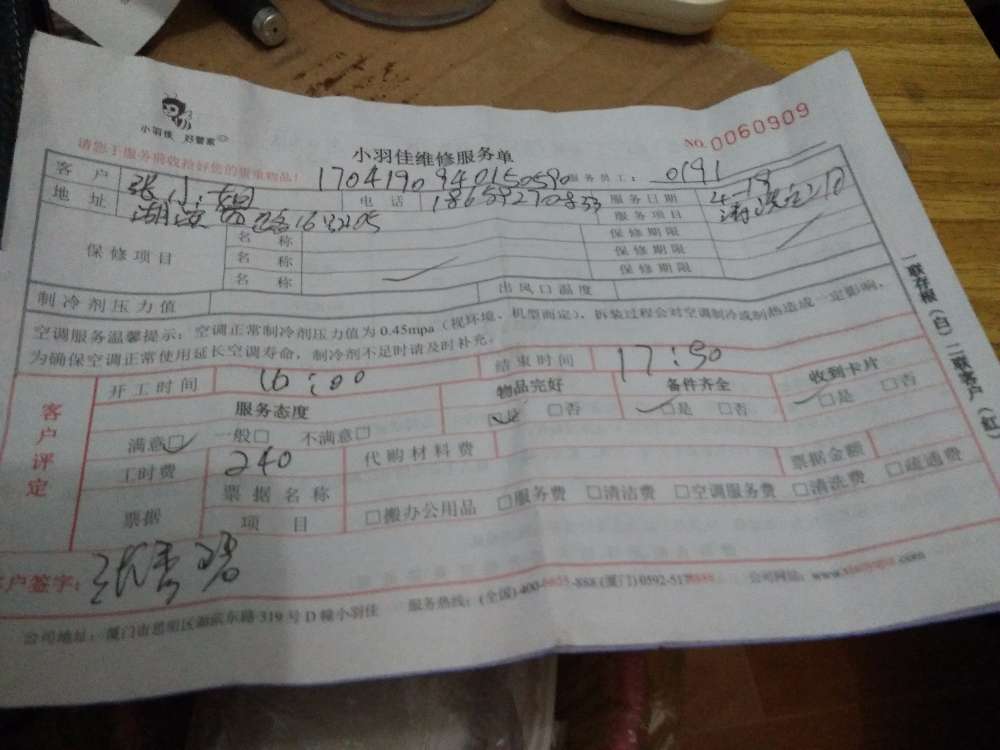 小羽佳 好管家
No.0060909
小羽佳维修服务单
请您于服务前收拾好您的贵重物品!
客户 张小姐 170419094015059 服务员工: 0191
地址 电话 服务日期 4-19
服务项目
保修项目 名称 保修期限
名称 保修期限
名称 保修期限
制冷剂压力值 出风口温度
空调服务温馨提示:空调正常制冷剂压力值为0.45mpa(视环境、机型而定),拆装过程会对空调制冷或制热造成一定影响,
为确保空调正常使用延长空调寿命,制冷剂不足时请及时补充。
客户评定
开工时间 16:00 结束时间 17:30
服务态度 物品完好 备件齐全 收到卡片
满意□ 一般□ 不满意□ □是 □否 □是 □否 □是 □否
工时费 240 代购材料费 票据金额
票据 票据名称
项目 □搬办公用品 □服务费 □清洁费 □空调服务费 □清洗费 □疏通费
客户签字:
公司地址:厦门市思明区湖滨东路319号D幢小羽佳 服务热线:(全国)400- -888(厦门)0592-51 公司网址:
一联存根(白)二联客户(红)